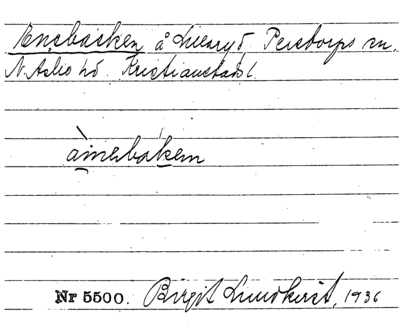 Enebacken å Lillaryd, Perstorps sn.
N. Åsbo hd. Kristianstads l.
ànebáken
Nr 5500. Birgit Lundkvist, 1936